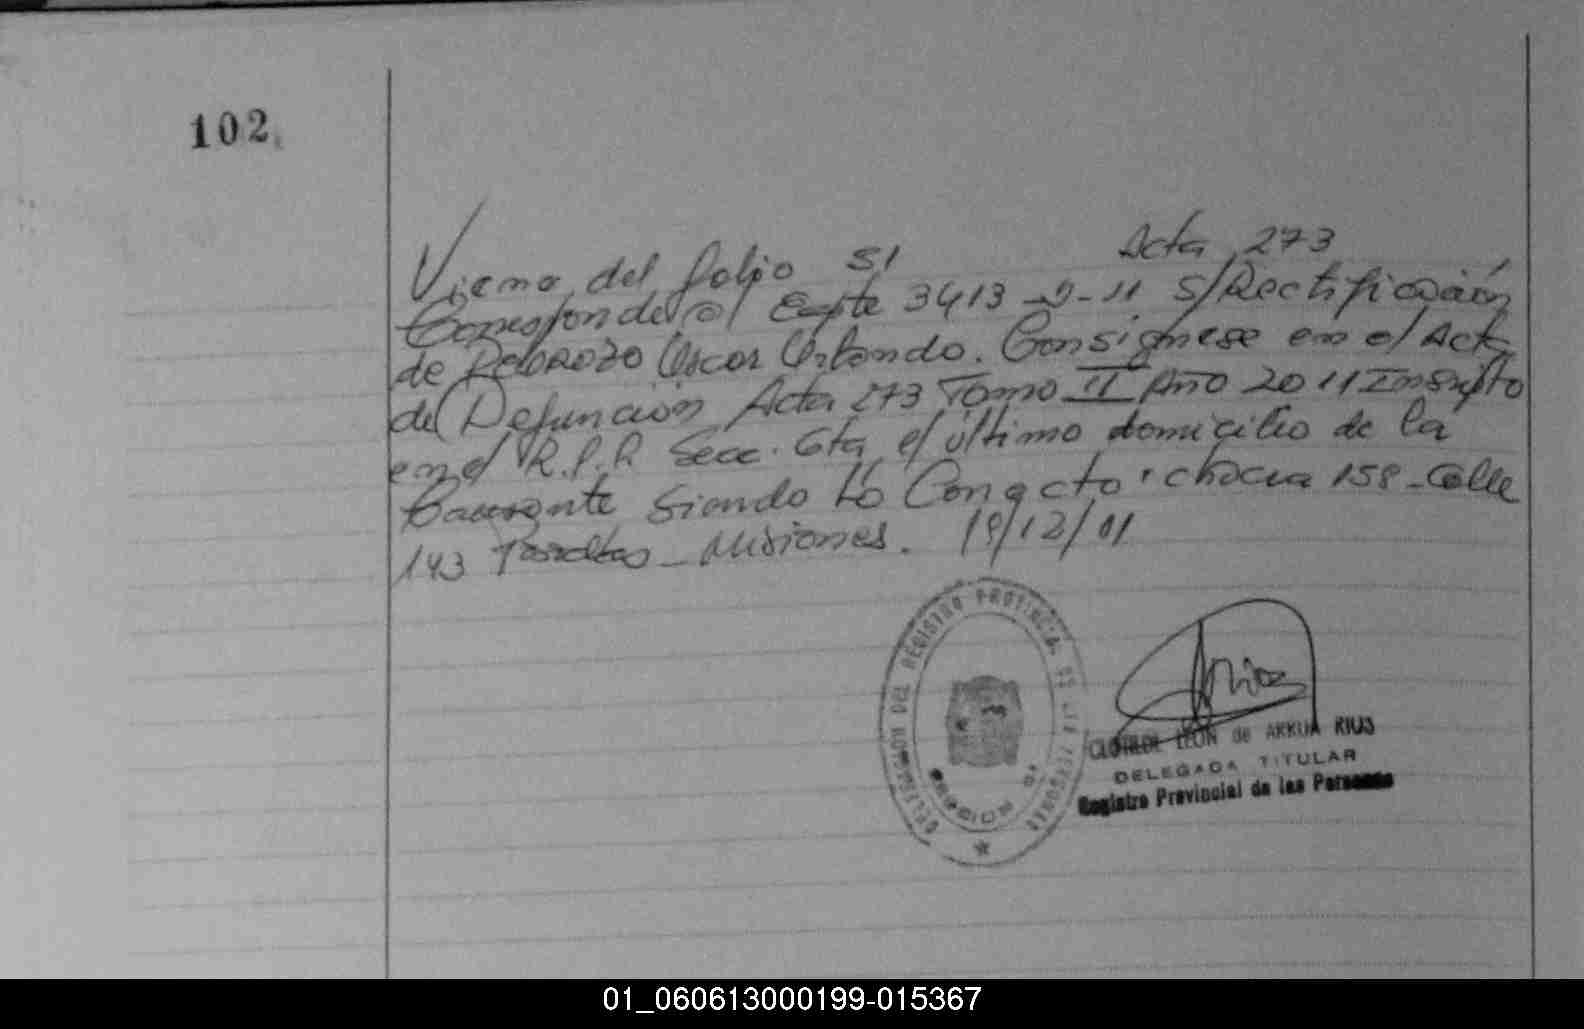 102
Viene del folio 51 Acta 273
Corresponde al Expte 3413-9-11 S/Rectificación
de Pedrozo Oscar Orlando. Consignese en el Acta
de Defunción Acta 273 Tomo II Año 2011 Inscripto
en el R.P.P. Secc. 6ta el último domicilio de la
Causante Siendo lo Correcto: chacra 158 - Calle
143 Posadas - Misiones. 19/12/11
DELEGACION DEL REGISTRO PROVINCIAL DE LAS PERSONAS
CLOTILDE LEON de ARRUA RIUS
DELEGADA TITULAR
Registro Provincial de las Personas
01_060613000199-015367